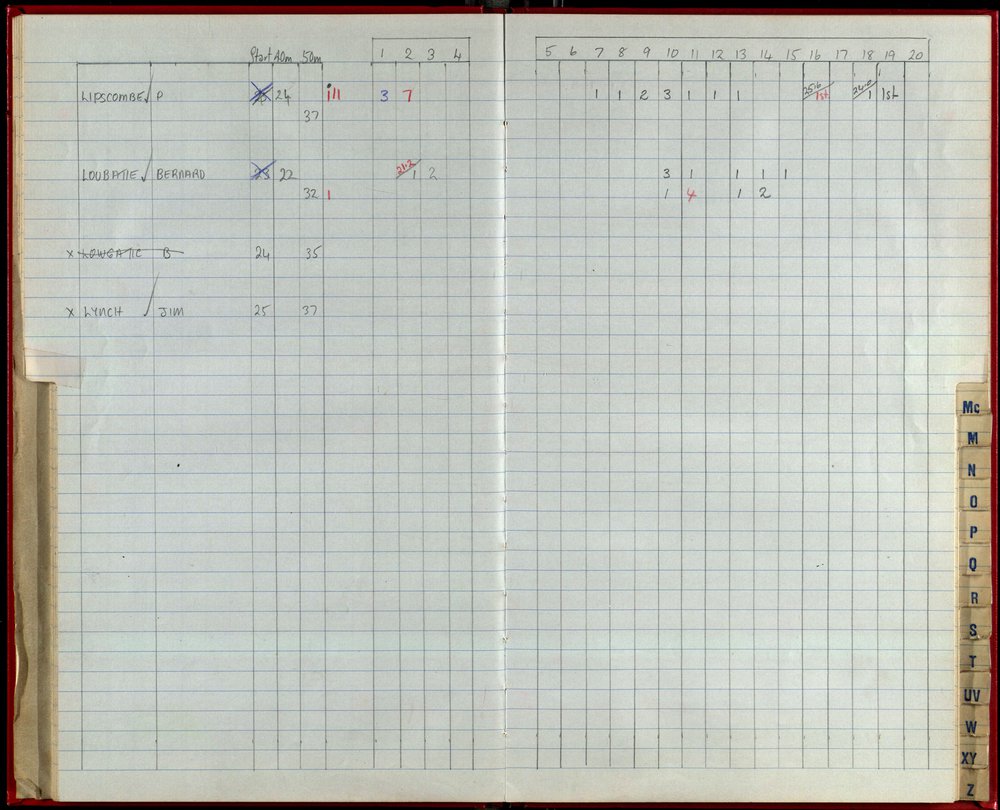 Start 40m 50m 1 2 3 4 5 6 7 8 9 10 11 12 13 14 15 16 17 18 19 20
LIPSCOMBE P 24 3 7 1 1 2 3 1 1 1 25.6 1st 24.0 1 1st
37
LOUBATIE BERNARD 23 22 21.2 1 2 3 1 1 1 1
32 1 1 4 1 2
X LOWGATIE B 24 35
X LYNCH JIM 25 37
Mc
M
N
O
P
Q
R
S
T
UV
W
XY
Z